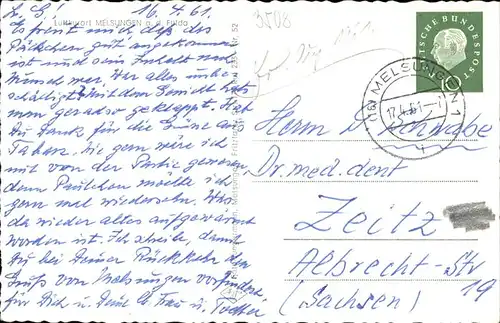 L. S. 16.4.61.
Luftkurort MELSUNGEN a. d. Fulda
Es freut mich, daß das
Päckchen gut angekommen
ist und sein Inhalt nach
Wunsch war. Hat alles unbe
schädigt? Mit dem Gewicht hat's
man geradeso geklappt. Hab
Du Dank für die Grüße an
Wie gern wäre ich
mit von der Partie gewesen
denn möchte ich
gern mal wiedersehn. Was
da wieder alles aufgewärmt
worden ist. Ich schreibe, damit
Du bei Deiner Rückkehr den
Gruß von Melsungen vorfindest
für Dich u. Deine lb. Frau u. Tochter
3508
DEUTSCHE BUNDESPOST
10
(16) MELSUNGEN 1
17.4.61.-7
Herrn Dr. Schwabe
Dr. med. dent
Zeitz
Albrecht-Str
19
(Sachsen)